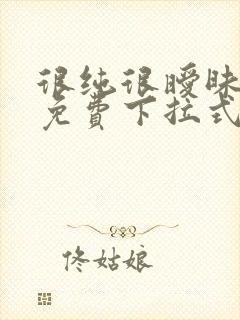 很纯很暧昧
免费下拉式
佟姑娘